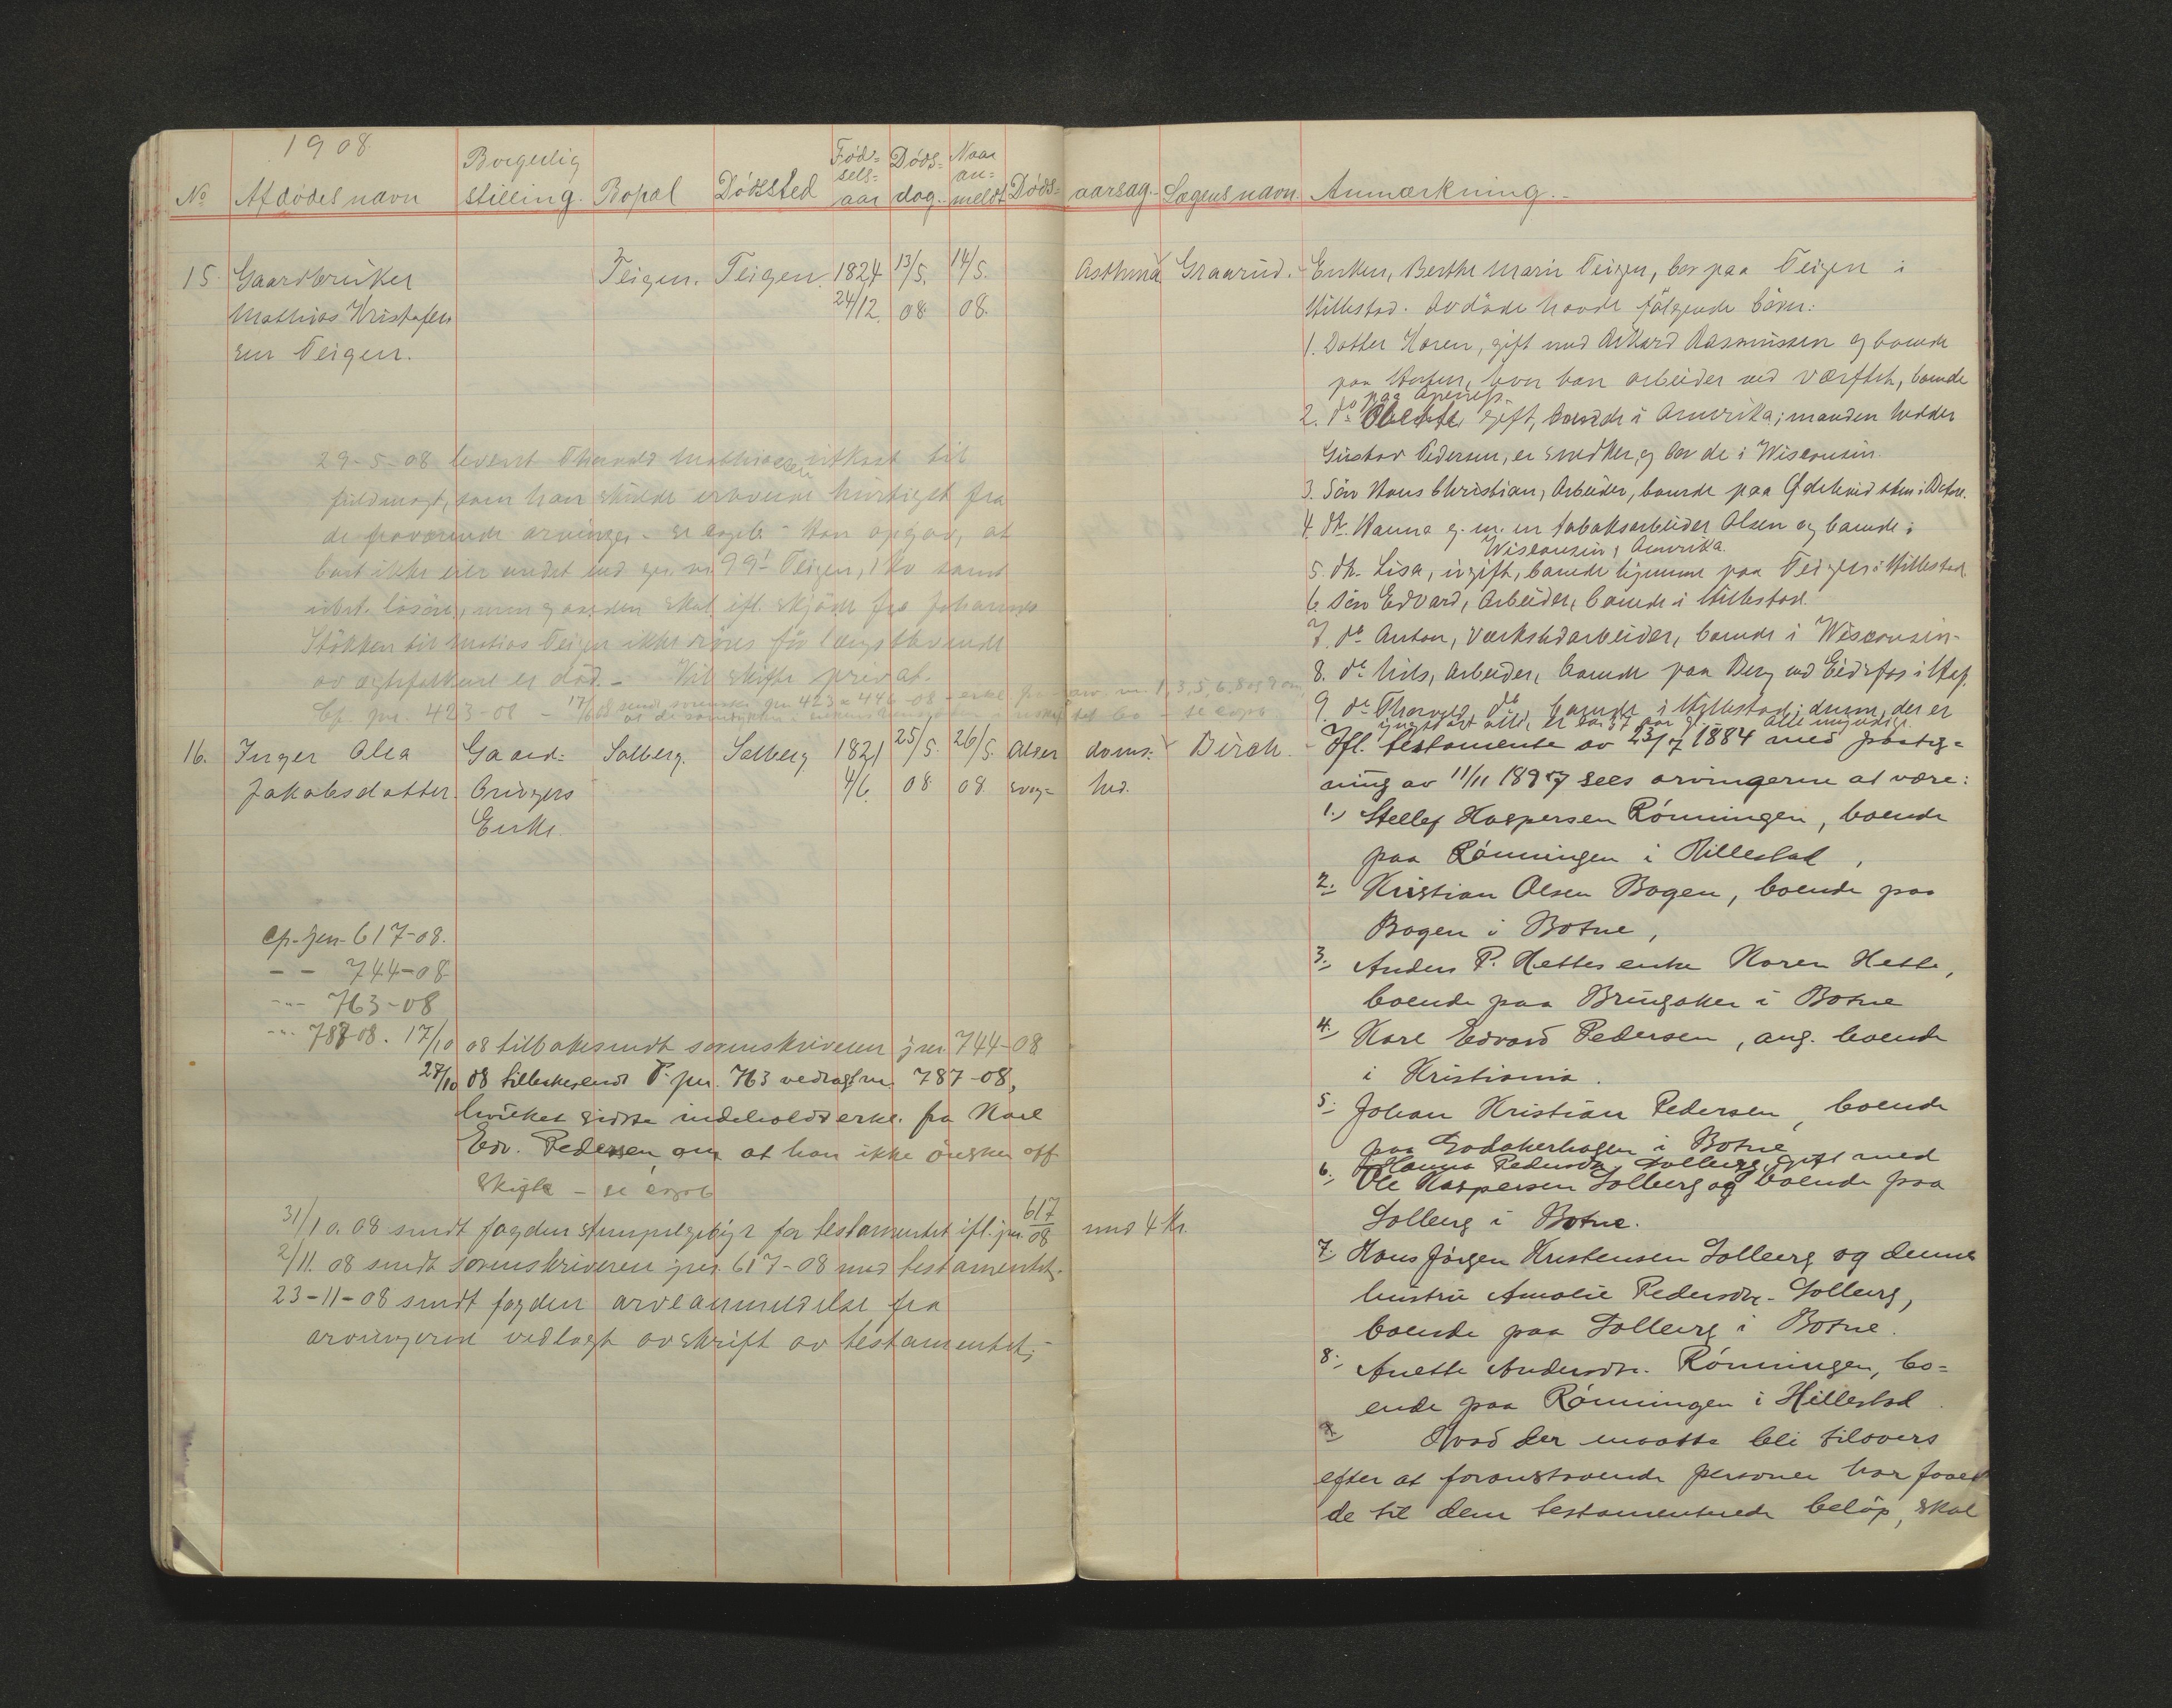 1908
No Afdødes navn Borgerlig stilling. Bopæl Dødssted Fødselsaar Dødsdag. Naar anmeldt Døds-
aarsag. Lægens navn. Anmærkning.
15. Gaardbruker Teigen. Teigen. 1824 13/5. 14/5.
Mathias Kristofer- 24/12. 08 08.
sen Teigen.
29-5-08 levert Thorvald Mathiassen utkast til
fuldmagt, som han skulde erhverve hurtigst fra
de fraværende arvinger - se
boet ikke eier andet end gr. nr. 99 Teigen, 1 ko samt
ubet. løsøre, men gaarden skal ifl. skjøde fra Johannes
Stokken til Matias Teigen ikke røres før længstlevende
av egtefolkene er død. - Vil skifte privat.
Cfr. jnr. 423-08
16. Inger Olea Gaard- Solberg. Solberg 1821 25/5. 26/5. Alder
Jakobsdatter. brugers 4/6. 08 08. svag-
Enke.
Cfr. jnr. 617-08.
- - 744-08
-"- 763-08
-"- 787-08. 17/10 08 tilbakesendt sorenskriveren jnr 744-08
27/10 08 tilbakesendt jnr. 763 vedlagt nr. 787-08,
hvilket sidste indeholdt erkl. fra Karl
Edv. Pedersen om at han ikke ønsker off.
skifte - se
31/10. 08 sendt fogden stempelgebyr for testamentet ifl. jnr. 617/08 med 4 kr.
2/11. 08 sendt sorenskriveren jnr. 617-08 med testamentet.
23-11-08 sendt fogden arveanmeldelse fra
arvingerne vedlagt avskrift av testamentet.
Asthma Graarud. Enken, Berthe Marie Teigen, bor paa Teigen i
Hillestad. Avdøde havde følgende børn:
1. Datter Karen, gift med Rasmussen og boende
paa Horten, hvor han arbeider ved værftet, boende
paa
2. do gift, boende i Amerika; manden hedder
Gustav Pedersen, er snedker, og bor de i Wisconsin.
3. Søn Hans Christian, Arbeider, boende paa i Botne.
4. dtr. Hanna g. m. en tobaksarbeider Olsen og boende i
Wisconsin, Amerika.
5. dtr. Lisa, ugift, boende hjemme paa Teigen i Hillestad.
6. Søn Edvard, Arbeider, boende i Hillestad.
7. do Anton, Verkstedarbeider, boende i Wisconsin.
8. do Nils, Arbeider, boende paa Berg ved Eidsfos i Hof.
9. do Thorvald, do, boende i Hillestad; denne, der er
yngst av alle, er ca. 37 aar gl. Alle myndige.
doms- Birch. Ifl. testamente av 23/7 1884 med paateg-
hed. ning av 11/11 1897 sees arvingerne at være:
1. Stellef Kaspersen Rønningen, boende
paa Rønningen i Hillestad,
2. Kristian Olsen Bogen, boende paa
Bogen i Botne,
3. Anders P. Hettes enke Karen Hette,
boende paa Bringaker i Botne
4. Karl Edvard Pedersen, ang. boende
i Kristiania.
5. Johan Kristian Pedersen, boende
paa Godakerhagen i Botne
6. Hanna Pedersdtr. Solberg, gift med
Ole Kaspersen Solberg og boende paa
Solberg i Botne.
7. Hans Jørgen Kristensen Solberg og dennes
hustru Amalie Pedersdtr. Solberg,
boende paa Solberg i Botne.
8. Anette Andersdtr. Rønningen, bo-
ende paa Rønningen i Hillestad.
Hvad der maatte bli tilovers
efter at foranstaaende personer har faaet
de til dem testamenterede beløp, skal